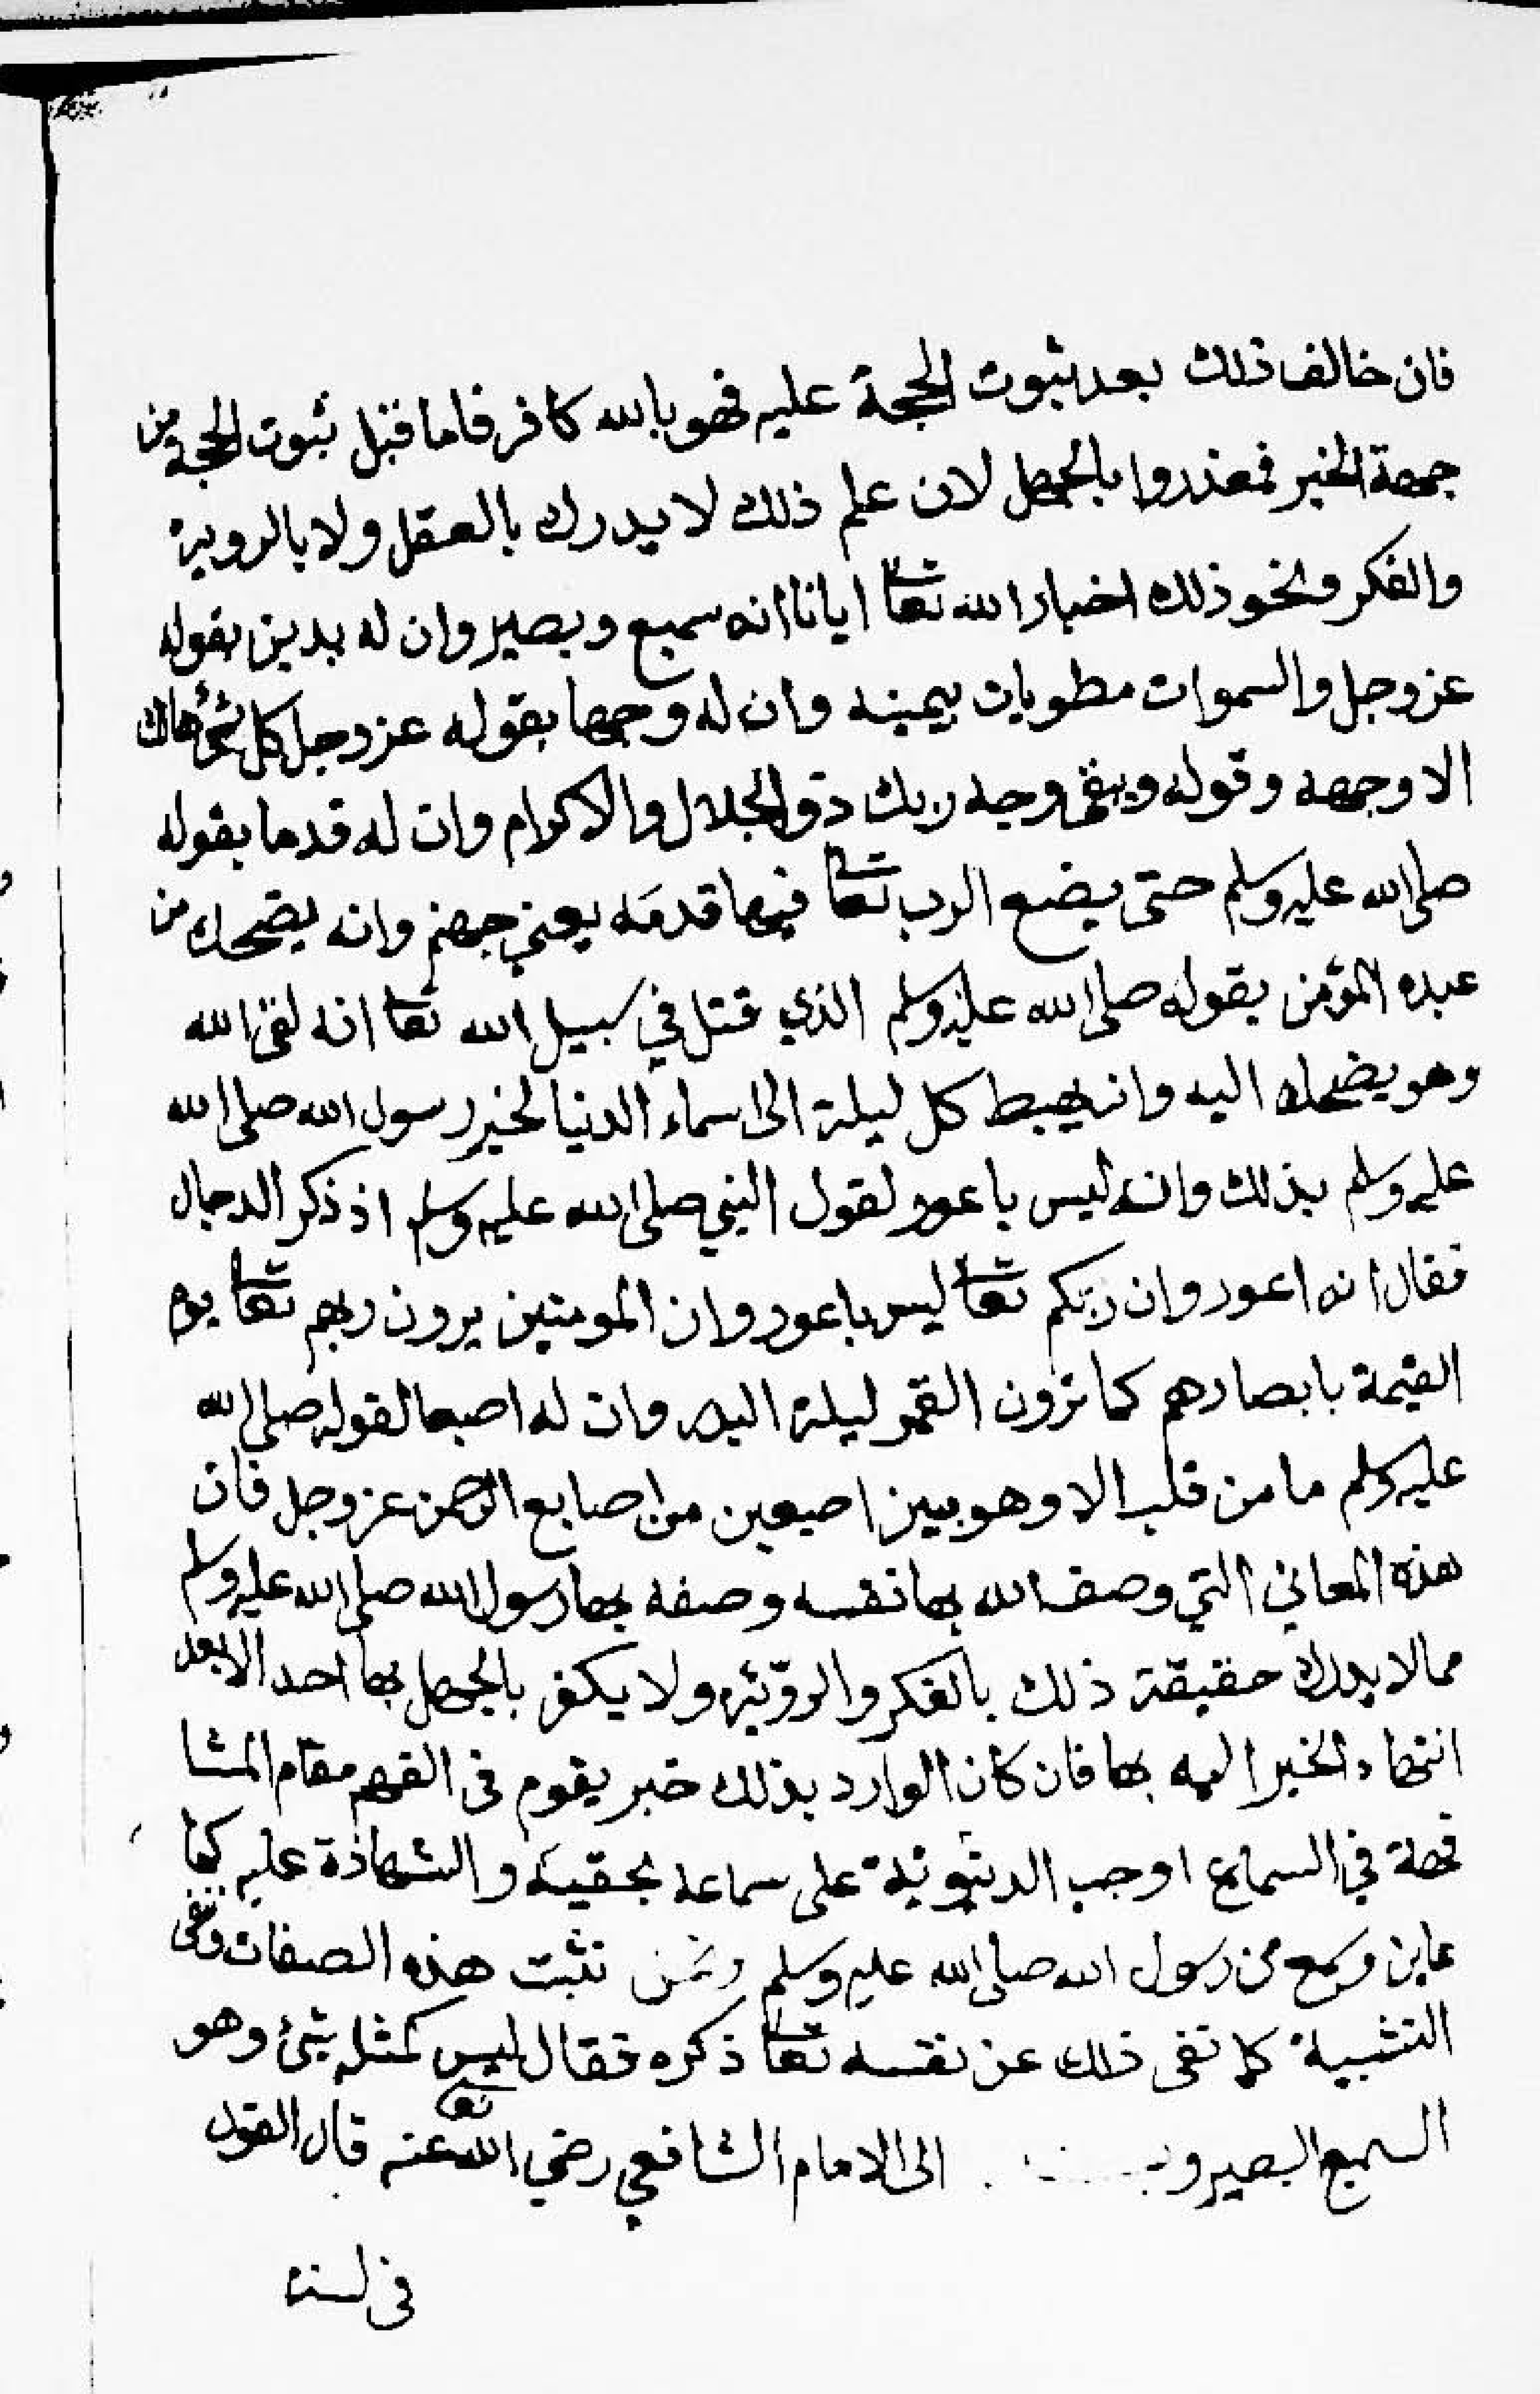 فان خالف ذلك بعد ثبوت الحجة عليه فهو بالله كافر فاما قبل ثبوت الحجة من
جهة الخبر فمعذروا بالجهل لان علم ذلك لا يدرك بالعقل ولا بالروية
والفكر ونحو ذلك اخبار الله تعا ايانا انه سميع وبصير وان له يدين بقوله
عز وجل والسموات مطويات بيمينه وان له وجها بقوله عز وجل كل شئ هالك
الا وجهه وقوله ويبقى وجه ربك ذو الجلال والاكرام وان له قدما بقوله
صلى الله عليه وسلم حتى يضع الرب تعا فيها قدمه يعني جهنم وانه يضحك من
عبده المؤمن بقوله صلى الله عليه وسلم الذي قتل في سبيل الله تعا انه لقى الله
وهو يضحك اليه وانه يهبط كل ليلة الى سماء الدنيا لخبر رسول الله صلى الله
عليه وسلم بذلك وانه ليس باعور لقول النبي صلى الله عليه وسلم اذ ذكر الدجال
فقال انه اعور وان ربكم تعا ليس باعور وان المومنين يرون ربهم تعا يوم
القيمة بابصارهم كما ترون القمر ليلة البدر وان له اصبعا لقوله صلى الله
عليه وسلم ما من قلب الا وهو بين اصبعين من اصابع الرحمن عز وجل فان
هذه المعاني التي وصف الله بها نفسه وصفه بها رسول الله صلى الله عليه وسلم
مما لا يدرك حقيقة ذلك بالفكر والروئية ولا يكفر بالجهل بها احد الا بعد
انتهاء الخبر اليه بها فان كان الوارد بذلك خبر يقوم في الفهم مقام المشا
فهة في السماع اوجب الدينونة على سماعه بحقيه والشهاذة عليه كما
عاين وسمع من رسول الله صلى الله عليه وسلم ونحن نثبت هذه الصفات وننفى
التشبية كما نفى ذلك عن نفسه تعا ذكره فقال ليس كمثله شئ وهو
السميع البصير الى الامام الشافعي رضي الله تعا عنه قال القول
في السنة